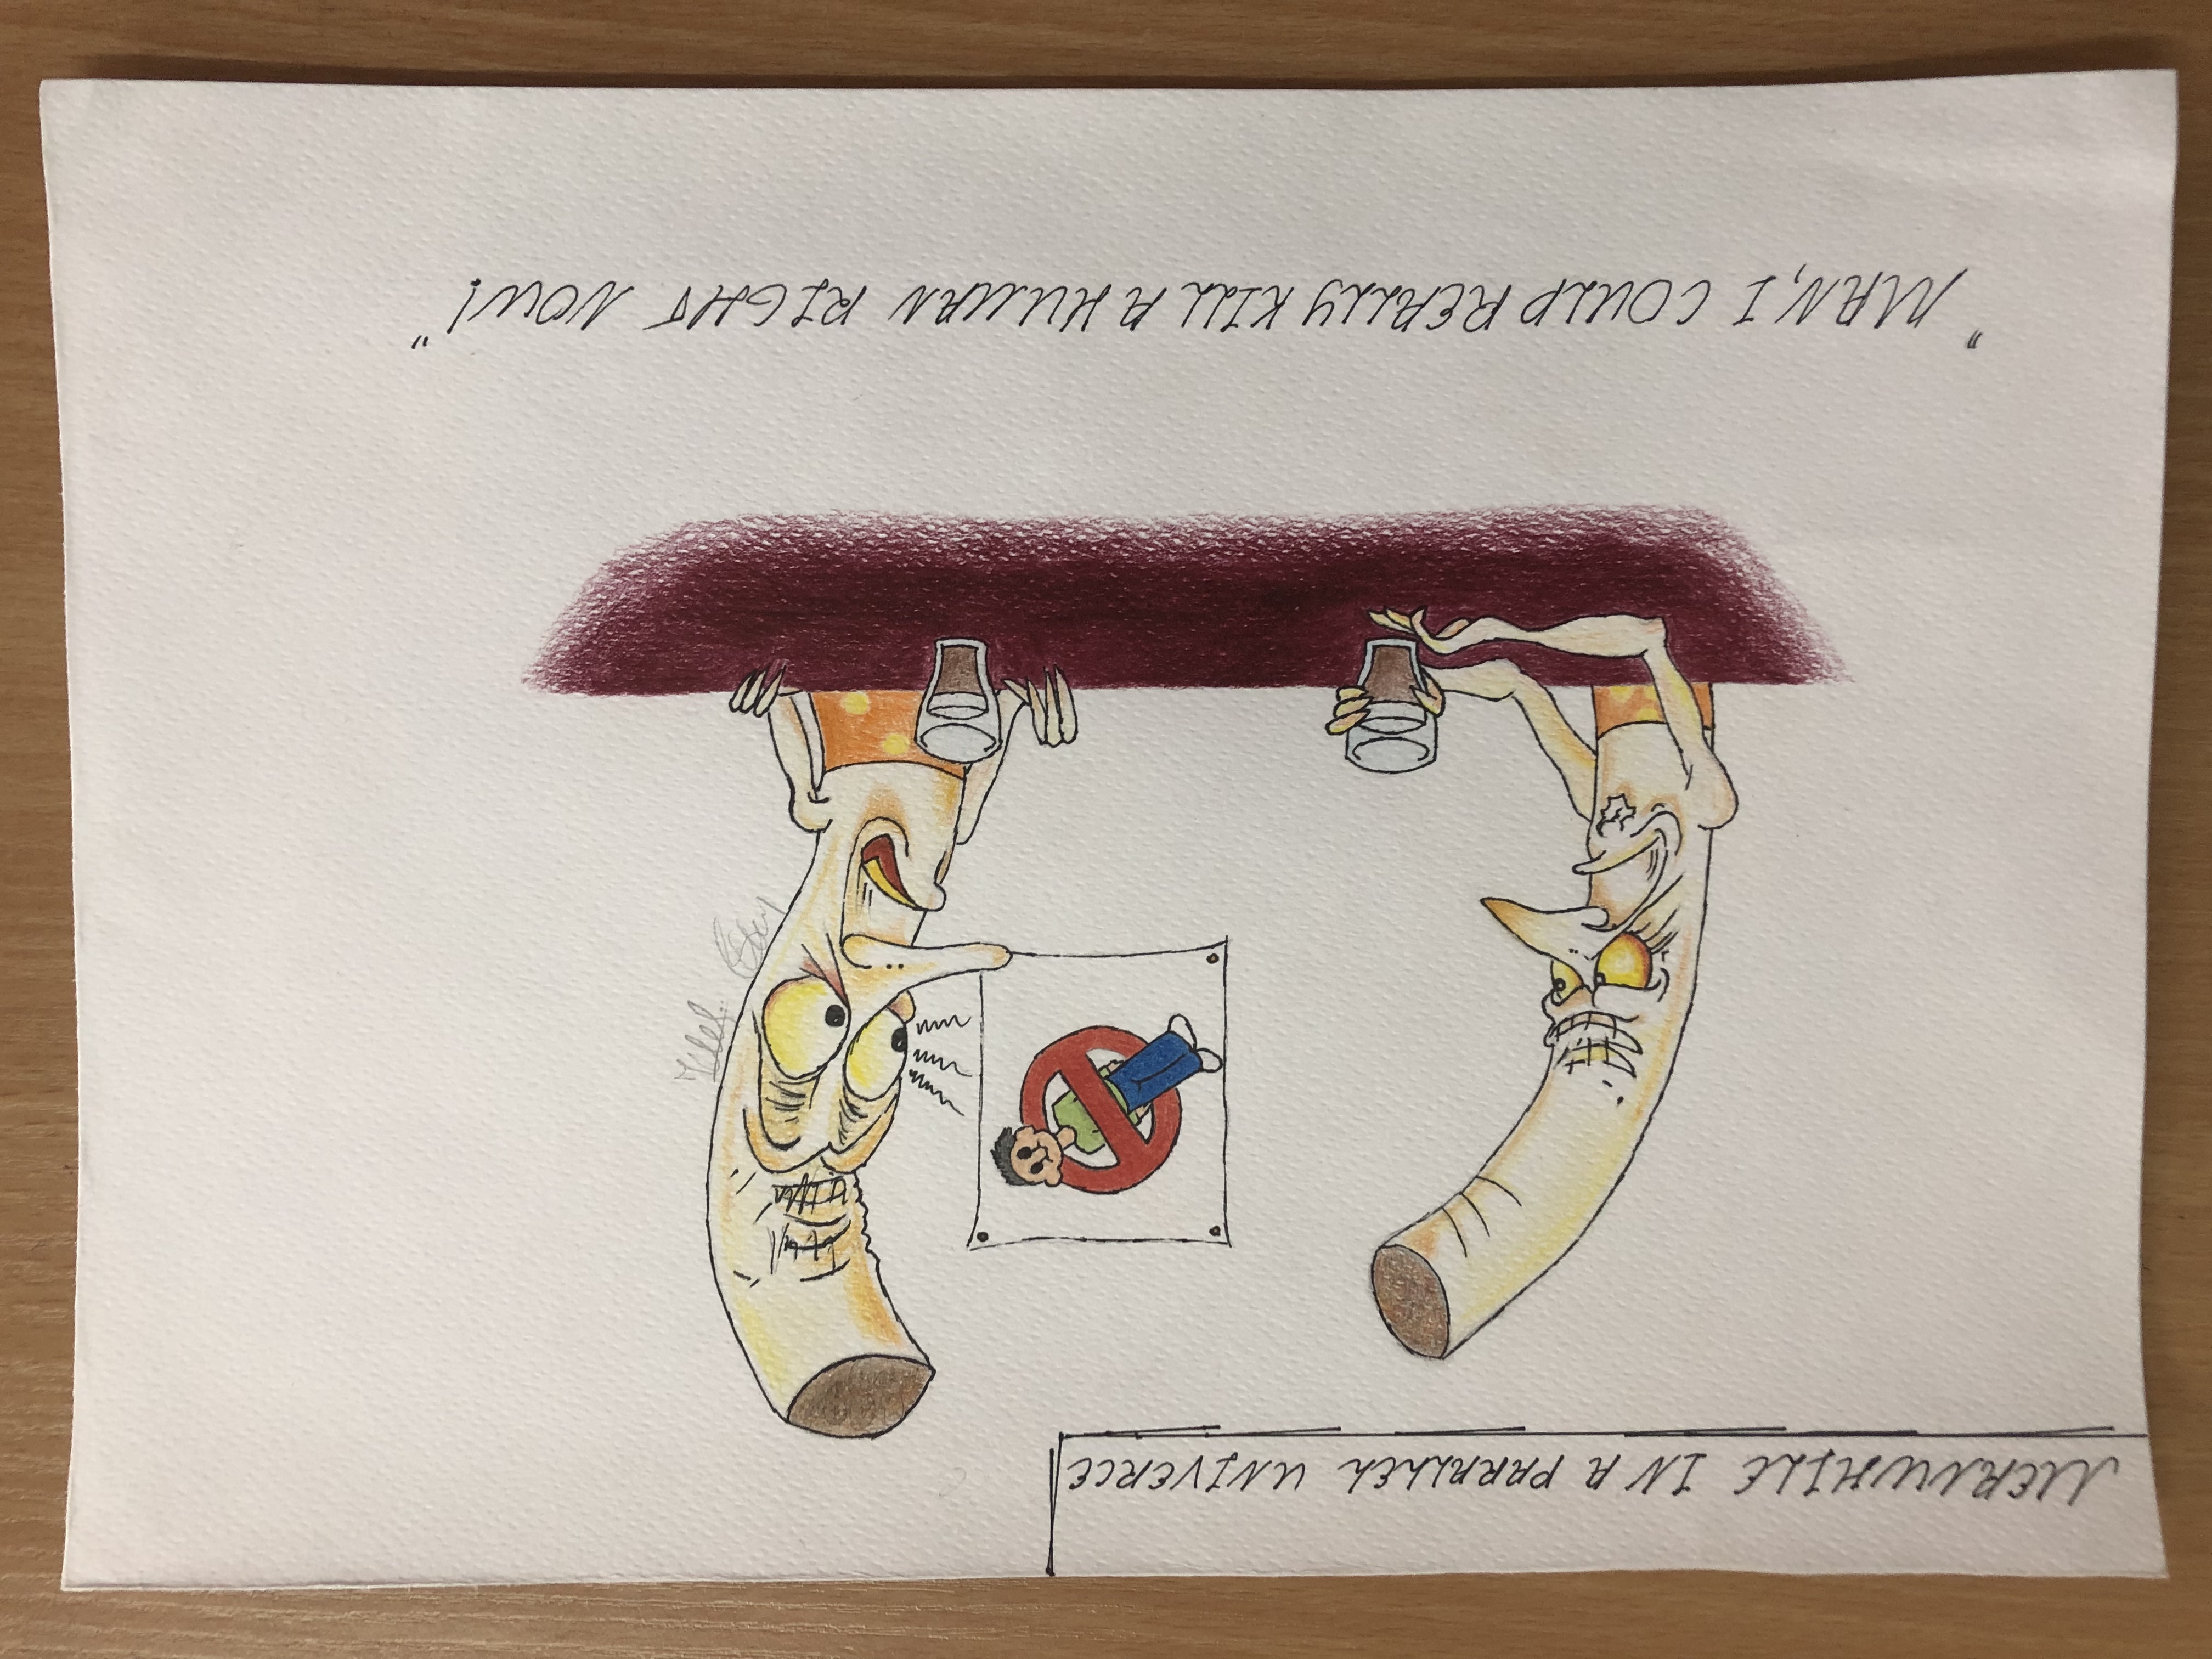 MEANWHILE IN A PARALLEL UNIVERCE
" MAN, I COULD REALLY KILL A HUMAN RIGHT NOW! "